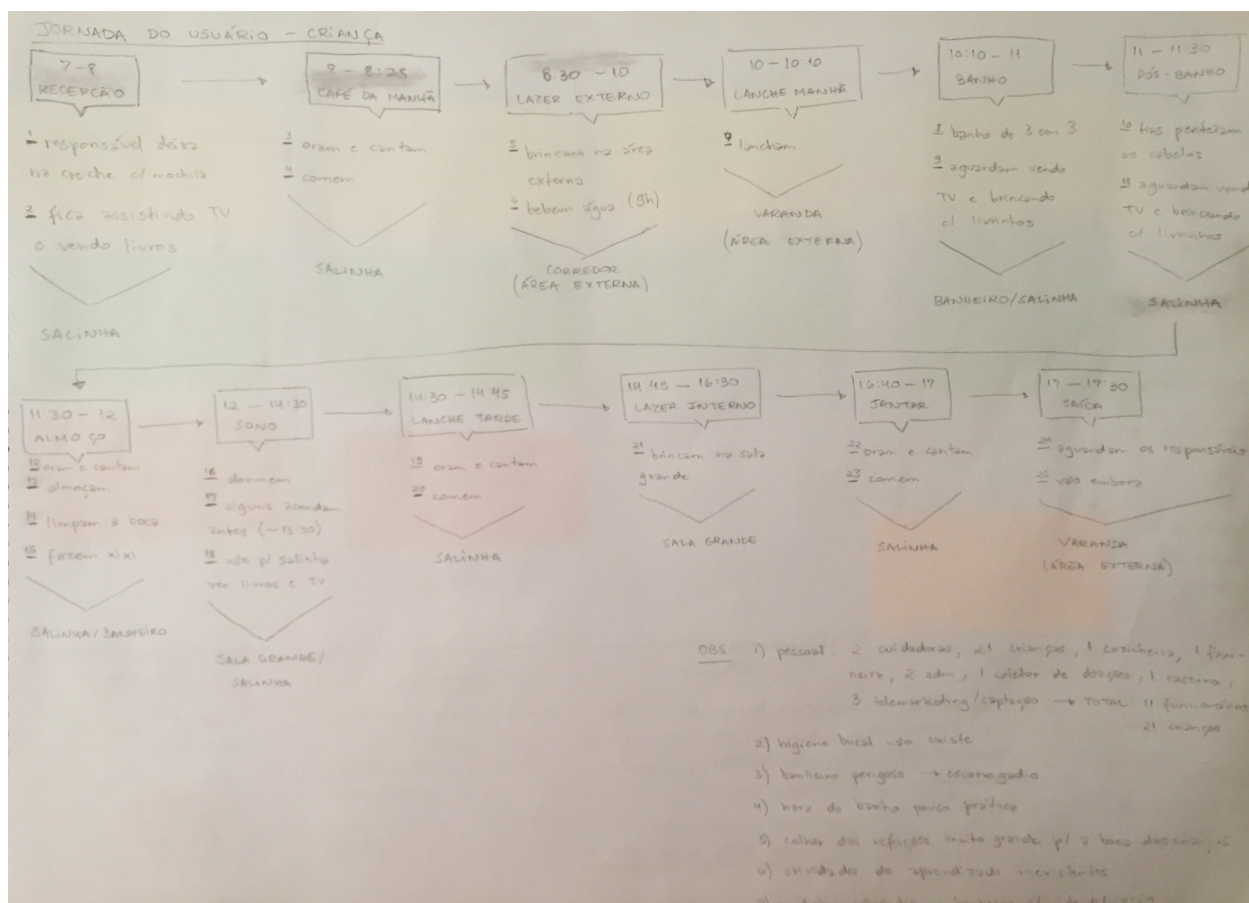 JORNADA DO USUÁRIO - CRIANÇA
7-8
RECEPÇÃO
1 responsável deixa
na creche c/ mochila
2 fica assistindo TV
e vendo livros
SALINHA
8 - 8:25
CAFÉ DA MANHÃ
3 oram e cantam
4 comem
SALINHA
8:30 - 10
LAZER EXTERNO
5 brincam na área
externa
6 bebem água (9h)
CORREDOR
(ÁREA EXTERNA)
10 - 10:10
LANCHE MANHÃ
7 lancham
VARANDA
(ÁREA EXTERNA)
10:10 - 11
BANHO
8 banho de 3 em 3
9 aguardam vendo
TV e brincando
c/ livrinhos
BANHEIRO/SALINHA
11 - 11:30
PÓS-BANHO
10 tias penteiam
os cabelos
11 aguardam vendo
TV e brincando
c/ livrinhos
SALINHA
11:30 - 12
ALMOÇO
12 oram e cantam
13 almoçam
14 limpam a boca
15 fazem xixo
SALINHA/BANHEIRO
12 - 14:30
SONO
16 dormem
17 alguns acordam
antes (~13:30)
18 vão p/ salinha
ver livros e TV
SALA GRANDE/
SALINHA
14:30 - 14:45
LANCHE TARDE
19 oram e cantam
20 comem
SALINHA
14:45 - 16:30
LAZER INTERNO
21 brincam na sala
grande
SALA GRANDE
16:40 - 17
JANTAR
22 oram e cantam
23 comem
SALINHA
17 - 17:30
SAÍDA
24 aguardam os responsáveis
25 vão embora
VARANDA
(ÁREA EXTERNA)
OBS 1) pessoal: 2 cuidadoras, 21 crianças, 1 cozinheira, 1 faxi-
neira, 2 adm, 1 coletor de doações, 1 caseiro,
3 telemarketing/captação → TOTAL: 11 funcionários
21 crianças
2) higiene bucal não existe
3) banheiro perigoso → escorregadio
4) hora do banho pouco prática
5) colher das refeições muito grande p/ a boca das crianças
6) atividades de aprendizado inexistentes